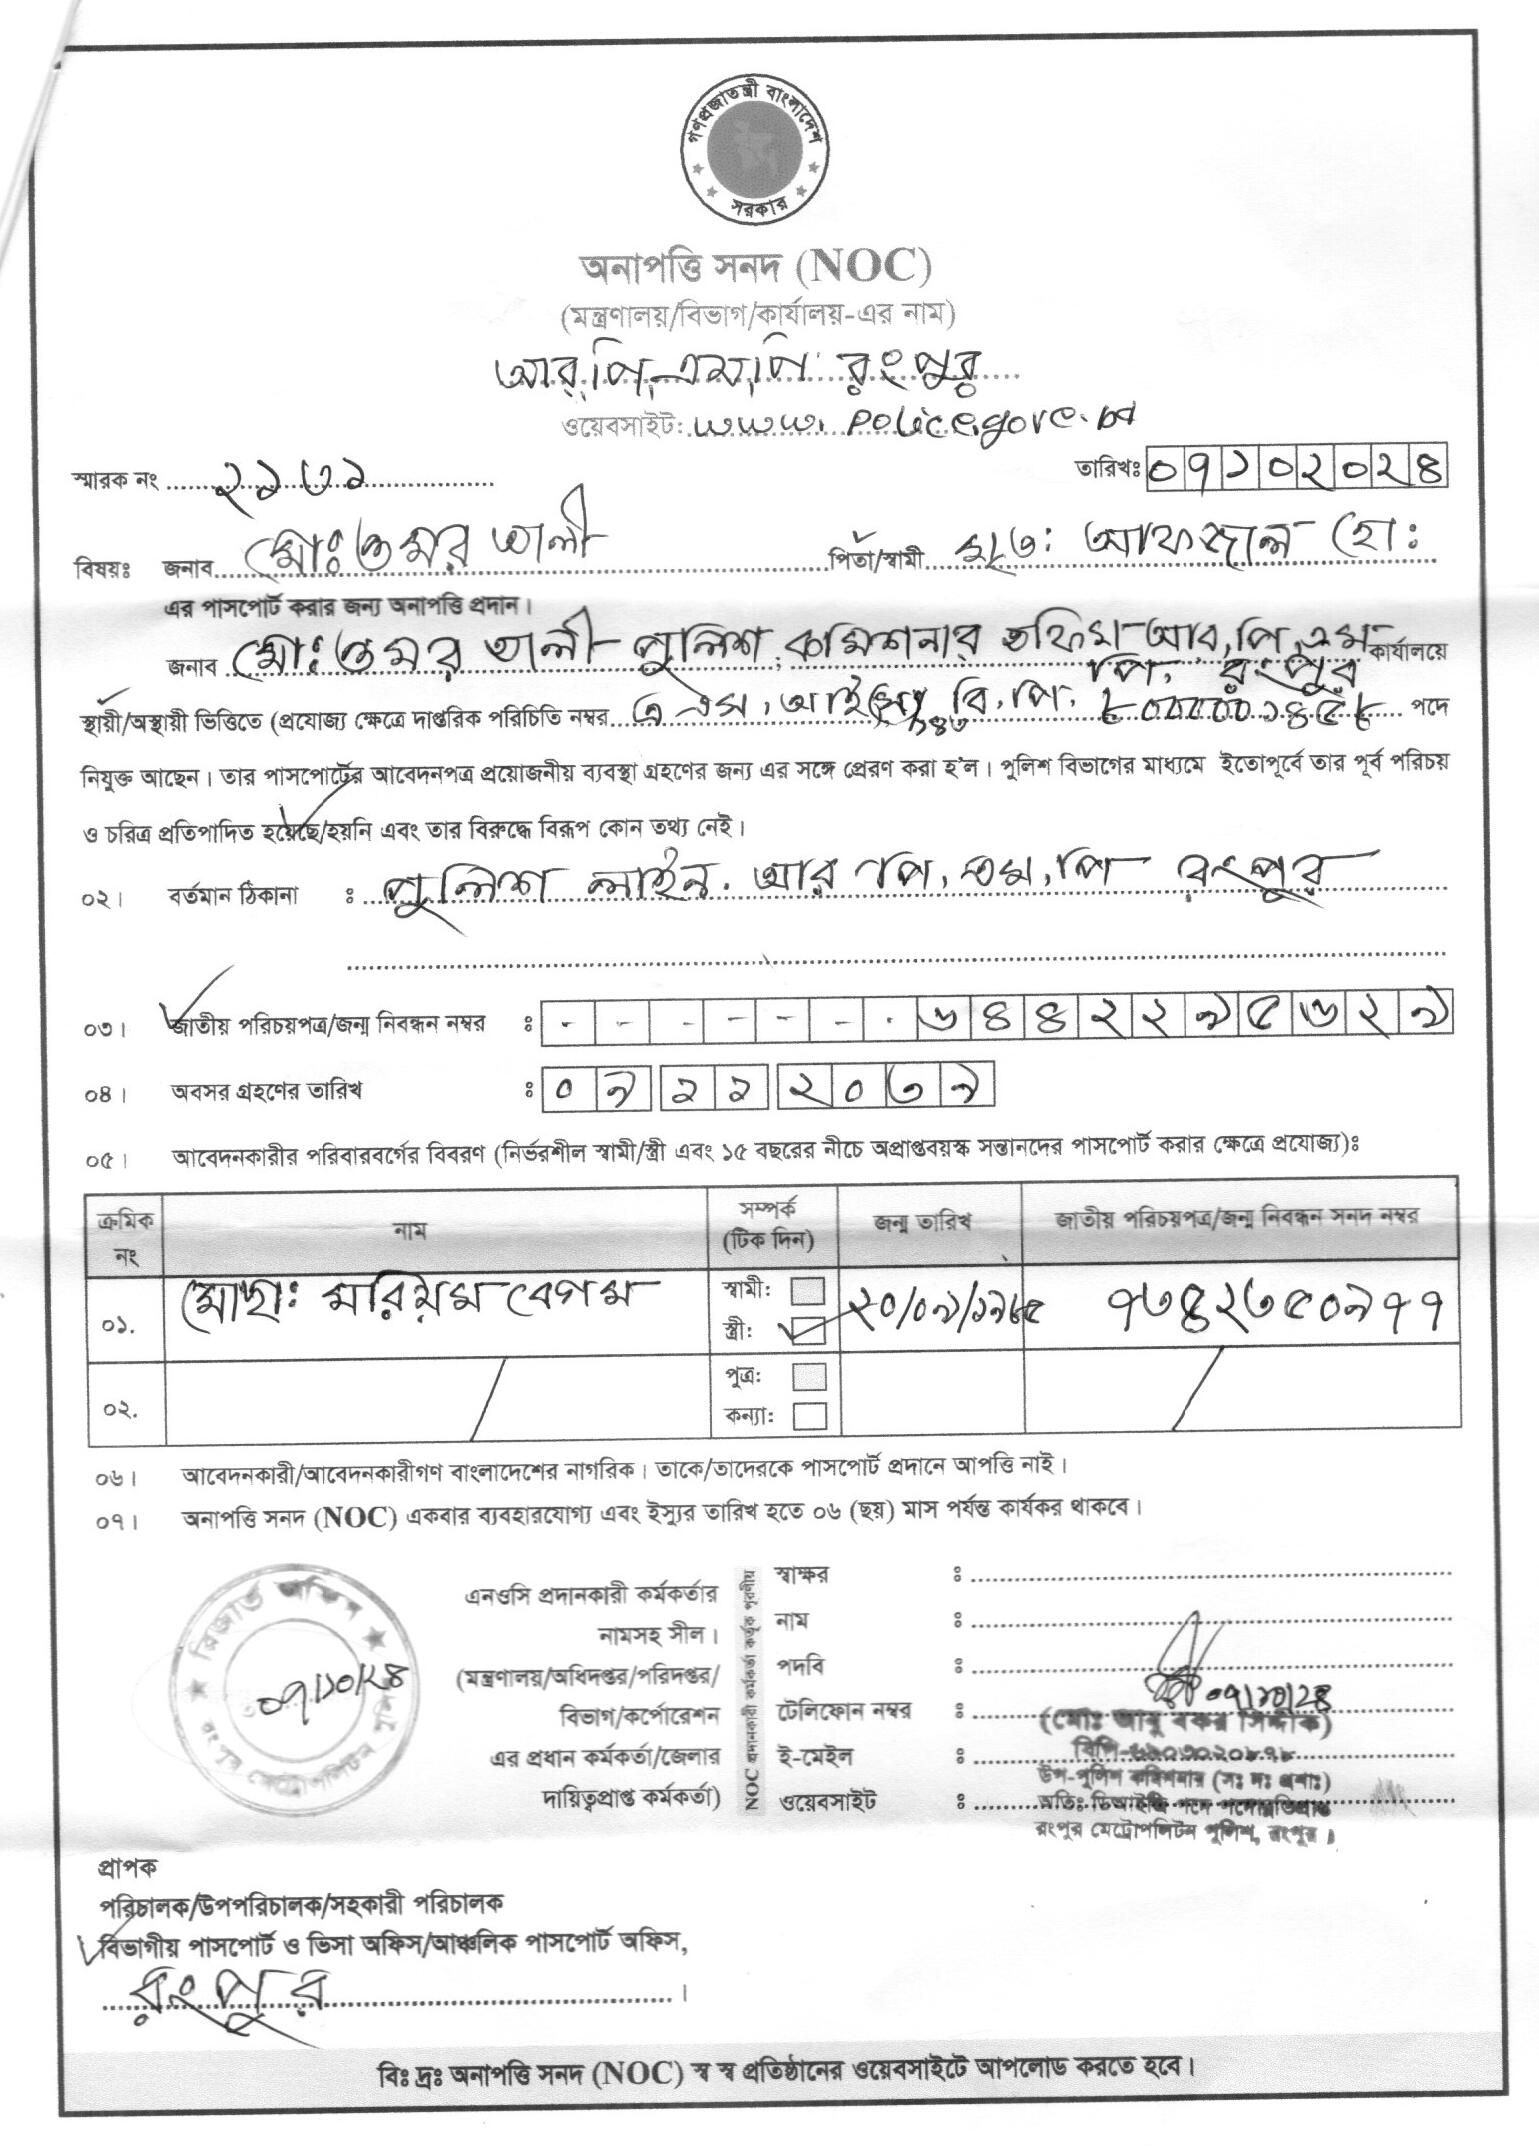 গণপ্রজাতন্ত্রী বাংলাদেশ
সরকার
অনাপত্তি সনদ (NOC)
(মন্ত্রণালয়/বিভাগ/কার্যালয়-এর নাম)
আর,পি,এম,পি রংপুর
ওয়েবসাইট: www.police.gove.bd
স্মারক নং ২১৩১ তারিখঃ ০৭১০২০২৪
বিষয়ঃ জনাব মোঃ ওমর আলী পিতা/স্বামী মৃত: আফজাল হো:
এর পাসপোর্ট করার জন্য অনাপত্তি প্রদান।
জনাব মোঃ ওমর আলী পুলিশ কমিশনার অফিস আর,পি,এম কার্যালয়ে
পি, রংপুর
স্থায়ী/অস্থায়ী ভিত্তিতে (প্রযোজ্য ক্ষেত্রে দাপ্তরিক পরিচিতি নম্বর এ এস, আই বি, পি, পদে
নিযুক্ত আছেন। তার পাসপোর্টের আবেদনপত্র প্রয়োজনীয় ব্যবস্থা গ্রহণের জন্য এর সঙ্গে প্রেরণ করা হ'ল। পুলিশ বিভাগের মাধ্যমে ইতোপূর্বে তার পূর্ব পরিচয়
ও চরিত্র প্রতিপাদিত হয়েছে/হয়নি এবং তার বিরুদ্ধে বিরূপ কোন তথ্য নেই।
০২। বর্তমান ঠিকানা ঃ পুলিশ লাইন, আর পি, এম, পি রংপুর
০৩। জাতীয় পরিচয়পত্র/জন্ম নিবন্ধন নম্বর ঃ - - - - - - - ৬৪৪২২৯৫৬২৯
০৪। অবসর গ্রহণের তারিখ ঃ ০৯ ১১ ২০৩৯
০৫। আবেদনকারীর পরিবারবর্গের বিবরণ (নির্ভরশীল স্বামী/স্ত্রী এবং ১৫ বছরের নীচে অপ্রাপ্তবয়স্ক সন্তানদের পাসপোর্ট করার ক্ষেত্রে প্রযোজ্য)ঃ
ক্রমিক নং নাম সম্পর্ক (টিক দিন) জন্ম তারিখ জাতীয় পরিচয়পত্র/জন্ম নিবন্ধন সনদ নম্বর
০১. মোছাঃ মরিয়ম বেগম স্বামী: স্ত্রী: ২০/০৯/১৯৮৫ ৭৩৪২৩৫০৯৭৭
০২. পুত্র: কন্যা:
০৬। আবেদনকারী/আবেদনকারীগণ বাংলাদেশের নাগরিক। তাকে/তাদেরকে পাসপোর্ট প্রদানে আপত্তি নাই।
০৭। অনাপত্তি সনদ (NOC) একবার ব্যবহারযোগ্য এবং ইস্যুর তারিখ হতে ০৬ (ছয়) মাস পর্যন্ত কার্যকর থাকবে।
রিজার্ভ অফিস
রংপুর মেট্রোপলিটন পুলিশ
০৭/১০/২৪
এনওসি প্রদানকারী কর্মকর্তার
নামসহ সীল।
(মন্ত্রণালয়/অধিদপ্তর/পরিদপ্তর/
বিভাগ/কর্পোরেশন
এর প্রধান কর্মকর্তা/জেলার
দায়িত্বপ্রাপ্ত কর্মকর্তা)
NOC প্রদানকারী কর্মকর্তা কর্তৃক পূরণীয়
স্বাক্ষর ঃ
নাম ঃ
পদবি ঃ
টেলিফোন নম্বর ঃ
ই-মেইল ঃ
ওয়েবসাইট ঃ
০৭/১০/২৪
(মোঃ আবু বকর সিদ্দীক)
উপ-পুলিশ কমিশনার (সঃ দঃ প্রশাঃ)
অতিঃ ডিআইজি পদে পদোন্নতিপ্রাপ্ত
রংপুর মেট্রোপলিটন পুলিশ, রংপুর।
প্রাপক
পরিচালক/উপপরিচালক/সহকারী পরিচালক
বিভাগীয় পাসপোর্ট ও ভিসা অফিস/আঞ্চলিক পাসপোর্ট অফিস,
রংপুর।
বিঃ দ্রঃ অনাপত্তি সনদ (NOC) স্ব স্ব প্রতিষ্ঠানের ওয়েবসাইটে আপলোড করতে হবে।